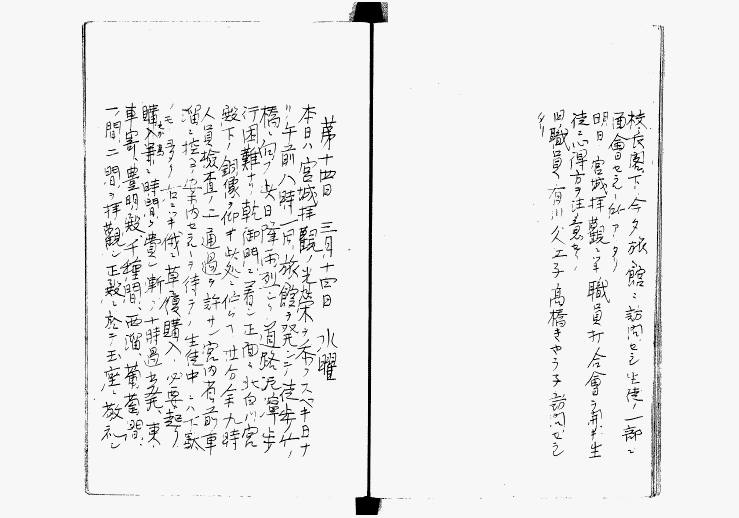 校長閣下今夕旅館ニ訪問セシ生徒ノ一部ニ
面會セラレシ由アタリ
明日宮城拝觀ニ付職員打合會ヲ開キ生
徒心得方ヲ注意ス
旧職員有川久工子高橋きやう子訪問セラ
ル
第十四日 三月十四日 水曜
本日ハ宮城拝觀ノ光榮ヲ希フスベキ日ナ
リ午前八時一同旅館ヲ発シ徒歩
橋ニ向フ此日降雨 道路泥濘歩
行困難ナリ乾御門ニ着シ正面ニ北白川宮
殿下ノ銅像ヲ仰ギ此処ニ 廿分余九時
人員檢査ノ上通過ヲ許サレ宮内省前車
溜ニ控ヘ案内セラルヲ待テリ生徒中ニハ下駄
ノモノ多ク 俄ニ草履購入ノ必要起リ
購入ニ時間ヲ費シ漸ク十時過出発、東
車寄、豊明殿、千種間、西溜、葡萄間、
一間二間ヲ拝觀シ正殿ニ於テ玉座ニ敬礼シ